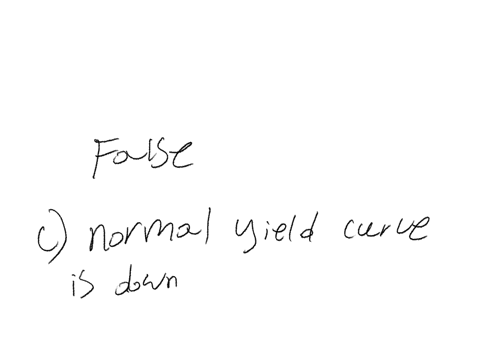 False
c) normal yield curve
is down